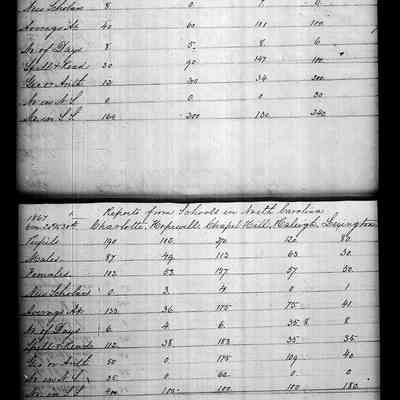 New Scholars 8 0
Average At. 40 60 101 100
No. of Days 8 5 8 6
Spell & Read 30 90 147 100
Geo or Arith 12 200 34 200
No in N. S. 0 0 0 30
No. in S. S. 160 200 130 240
1867
Reports from Schools in North Carolina
Charlotte. Hopewell. Chapel Hill. Raleigh. Lexington
Pupils 190 270 120 80
Males 87 49 113 63 30
Females 103 63 157 57 50
New Scholars 0 3 4 0 1
Average At. 133 36 175 75 41
No. of Days 6 4 6 8
Spell & Read 112 38 183 35 35
Geo or Arith 50 0 175 109 40
No in N. S. 35 0 62 0 0
No. in S. S. 400 100 100 180